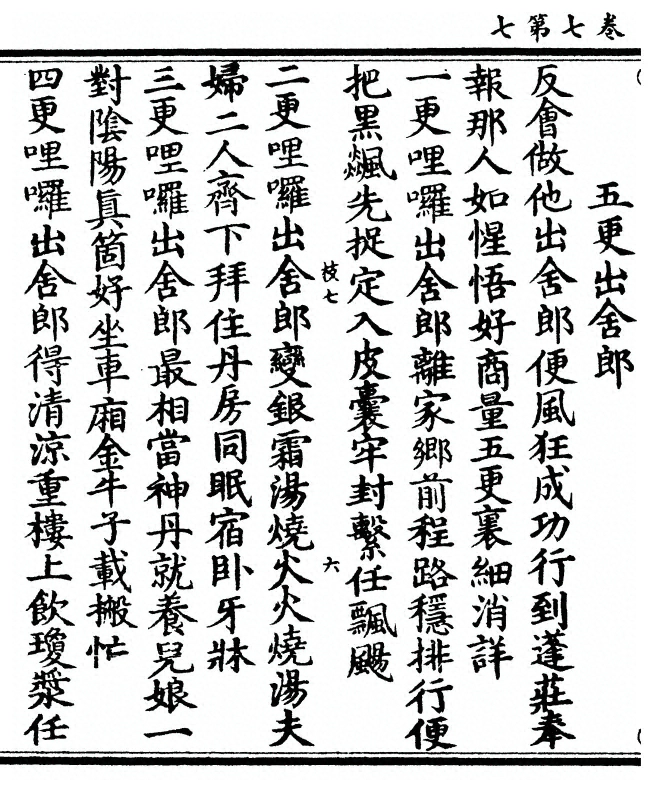 七第七卷
五更出舍郎
反會做他出舍郎便風狂成功行到蓬莊奉
報那人如惺悟好商量五更裏細消詳
一更哩囉出舍郎離家鄉前程路穩排行便
把黑飈先捉定入皮囊牢封繫任飄颺
枝七
六
二更哩囉出舍郎變銀霜湯燒火火燒湯夫
婦二人齊下拜住丹房同眠宿卧牙牀
三更哩囉出舍郎最相當神丹就養兒娘一
對陰陽真箇好坐車廂金牛子載搬忙
四更哩囉出舍郎得清涼重樓上飲瓊漿任